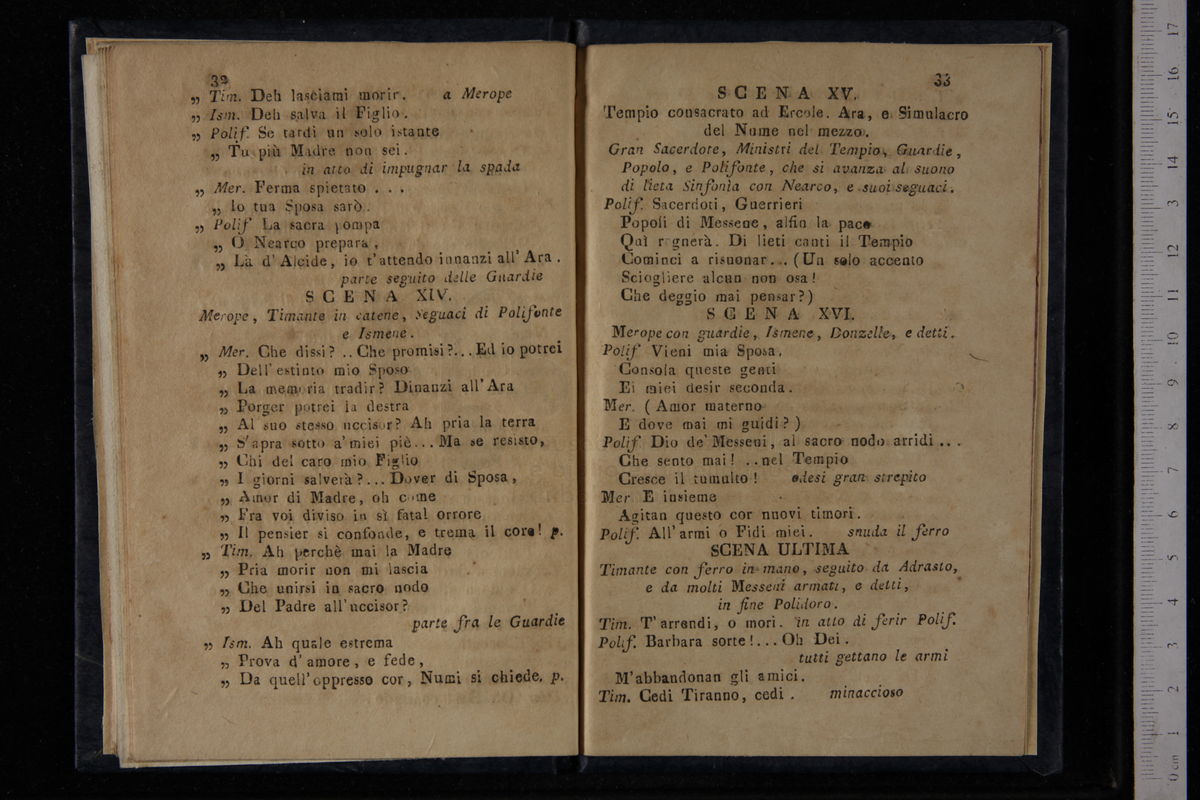 32
„ Tim. Deh lasciami morir. a Merope
„ Ism. Deh salva il Figlio.
„ Polif. Se tardi un solo istante
„ Tu più Madre non sei.
in atto di impugnar la spada
„ Mer. Ferma spietato . . .
„ Io tua Sposa sarò.
„ Polif La sacra pompa
„ O Nearco prepara,
„ Là d'Alcide, io t'attendo innanzi all'Ara.
parte seguito delle Guardie
SCENA XIV.
Merope, Timante in catene, seguaci di Polifonte
e Ismene.
„ Mer. Che dissi? .. Che promisi?... Ed io potrei
„ Dell'estinto mio Sposo
„ La memoria tradir? Dinanzi all'Ara
„ Porger potrei la destra
„ Al suo stesso uccisor? Ah pria la terra
„ S'apra sotto a'miei piè... Ma se resisto,
„ Chi del caro mio Figlio
„ I giorni salverà?... Dover di Sposa,
„ Amor di Madre, oh come
„ Fra voi diviso in sì fatal orrore
„ Il pensier si confonde, e trema il core! p.
„ Tim. Ah perchè mai la Madre
„ Pria morir non mi lascia
„ Che unirsi in sacro nodo
„ Del Padre all'uccisor?
parte fra le Guardie
„ Ism. Ah quale estrema
„ Prova d'amore, e fede,
„ Da quell'oppresso cor, Numi si chiede. p.
33
SCENA XV.
Tempio consacrato ad Ercole. Ara, e Simulacro
del Nume nel mezzo.
Gran Sacerdote, Ministri del Tempio, Guardie,
Popolo, e Polifonte, che si avanza al suono
di lieta Sinfonìa con Nearco, e suoi seguaci.
Polif. Sacerdoti, Guerrieri
Popoli di Messene, alfin la pace
Quì regnerà. Di lieti canti il Tempio
Cominci a risuonar... (Un solo accento
Sciogliere alcun non osa!
Che deggio mai pensar?)
SCENA XVI.
Merope con guardie, Ismene, Donzelle, e detti.
Polif Vieni mia Sposa,
Consola queste genti
Ei miei desir seconda.
Mer. (Amor materno
E dove mai mi guidi?)
Polif Dio de'Messeni, al sacro nodo arridi...
Che sento mai! ..nel Tempio
Cresce il tumulto! odesi gran strepito
Mer E insieme
Agitan questo cor nuovi timori.
Polif. All'armi o Fidi miei. snuda il ferro
SCENA ULTIMA
Timante con ferro in mano, seguito da Adrasto,
e da molti Messeni armati, e detti,
in fine Polidoro.
Tim. T'arrendi, o mori. in atto di ferir Polif.
Polif. Barbara sorte!... Oh Dei.
tutti gettano le armi
M'abbandonan gli amici.
Tim. Cedi Tiranno, cedi. minaccioso
0 cm 1 2 3 4 5 6 7 8 9 10 11 12 13 14 15 16 17